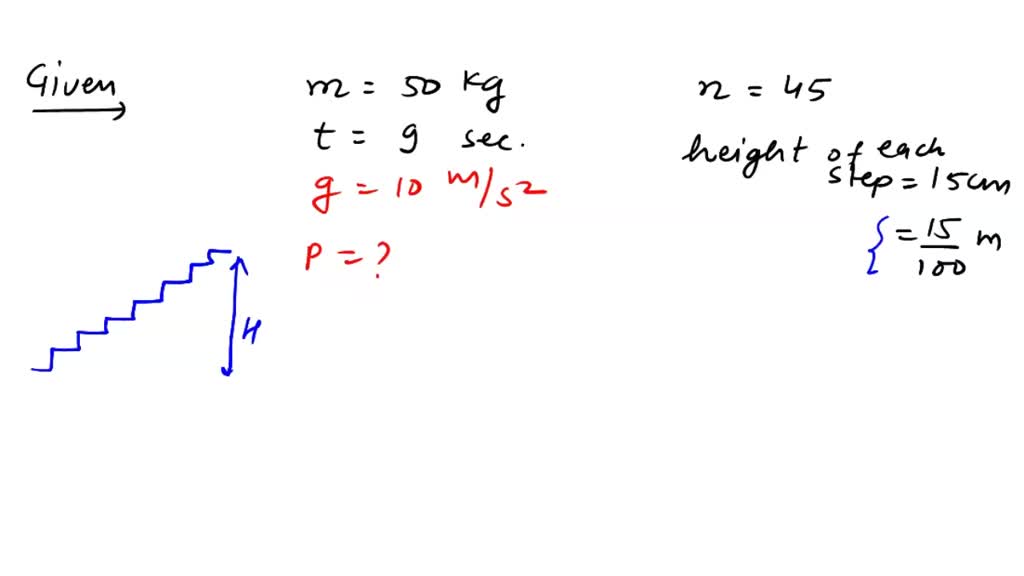 Given
m = 50 kg
t = 9 sec.
g = 10 m/s²
P = ?
H
n = 45
height of each
step = 15cm
{ = 15/100 m